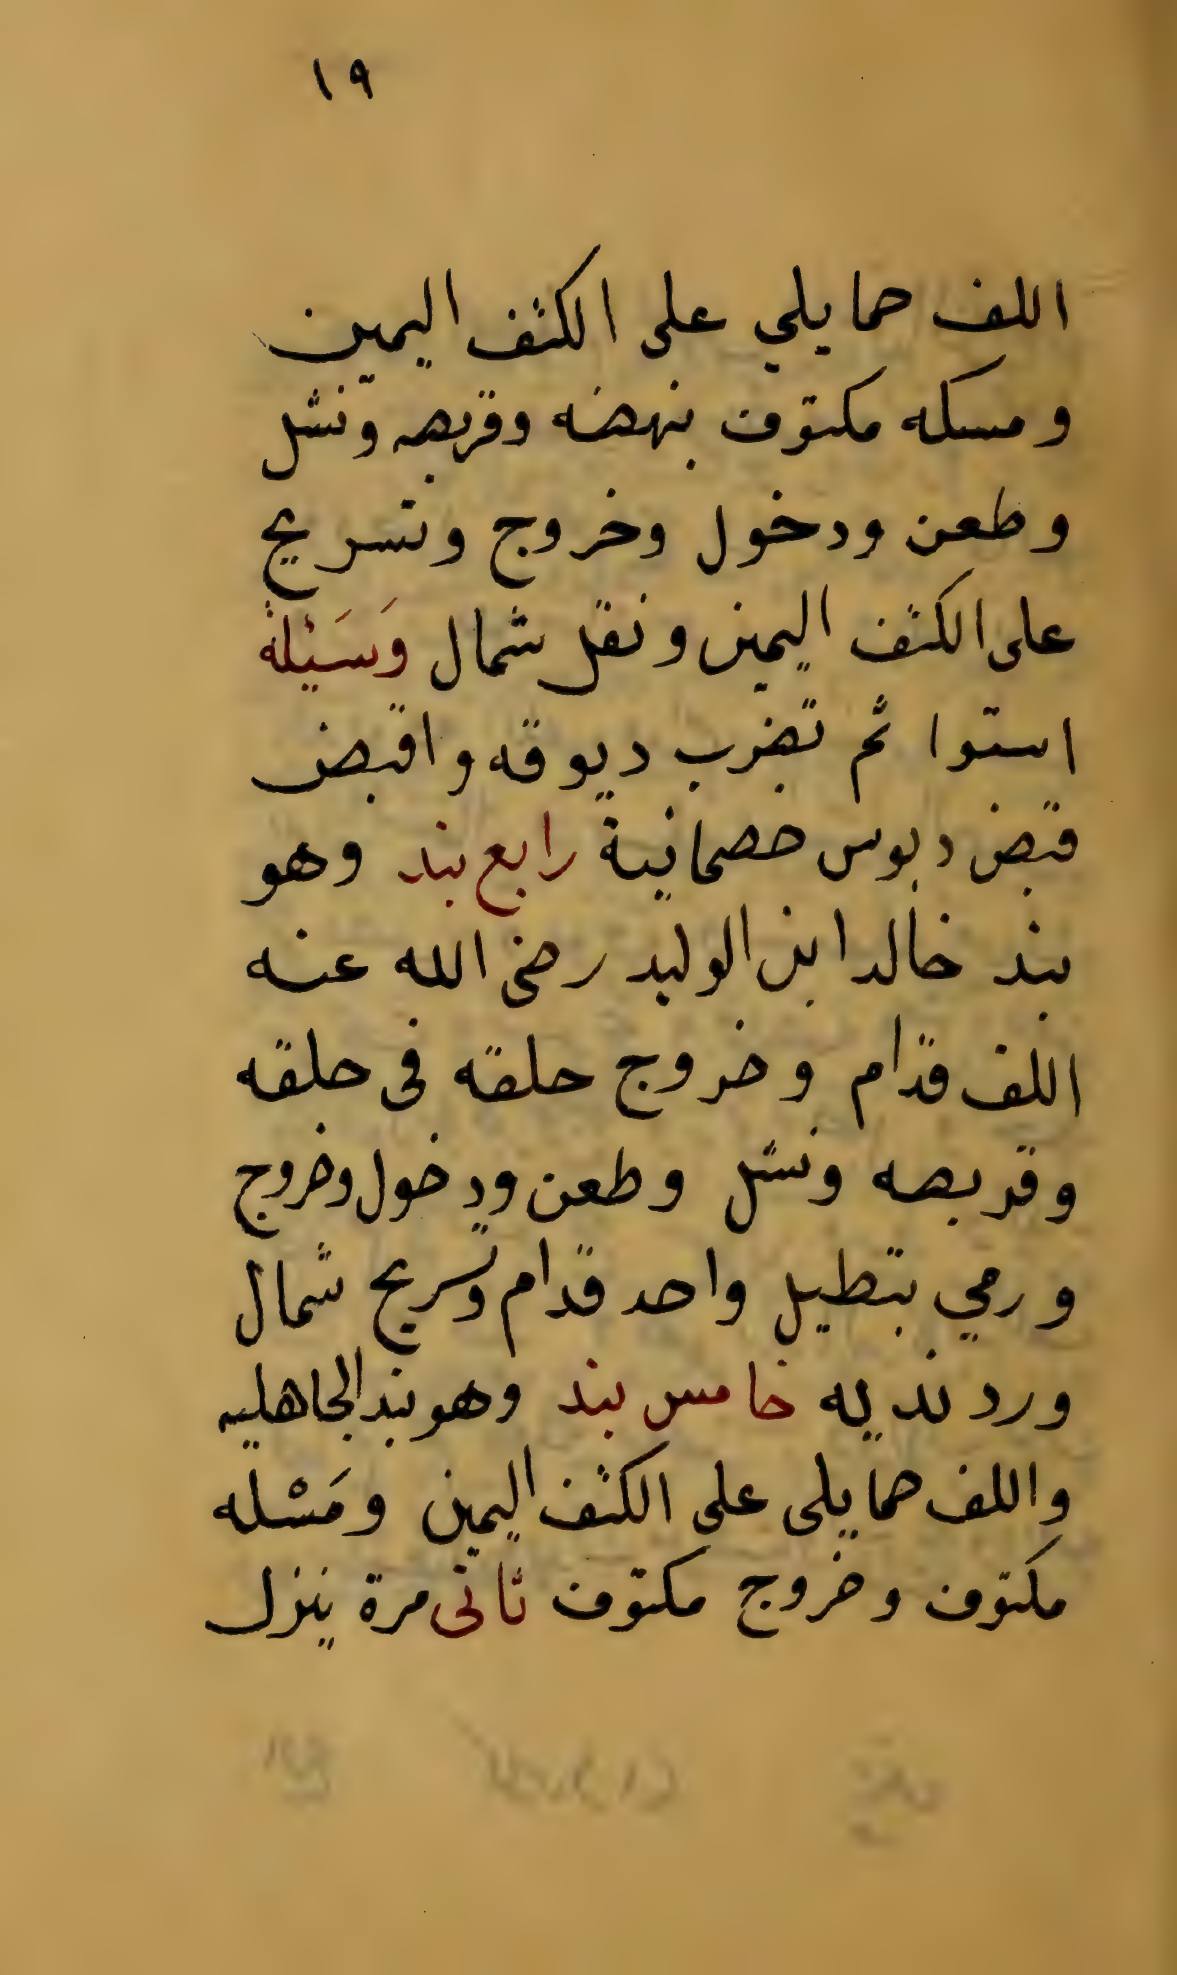 ١٩
اللف حمايلي على الكتف اليمين
ومسكه مكتوف بنهضه وقربصه ونشل
وطعن ودخول وخروج وتسريح
على الكتف اليمين ونقل شمال وَسَيْلة
استوا ثم تضرب ديوقه واقبض
قبض دبوس خصمانية رابع بند وهو
بند خالد ابن الوليد رضى الله عنه
اللف قدام وخروج حلقه فى حلقه
وقربصه ونشل وطعن ودخول وخروج
ورمي بتطيل واحد قدام وتسريح شمال
ورد نديه خامس بند وهو بند الجاهليه
واللف حمايلى على الكتف اليمين ومَسْله
مكتوف وخروج مكتوف ثانى مرة ينزل